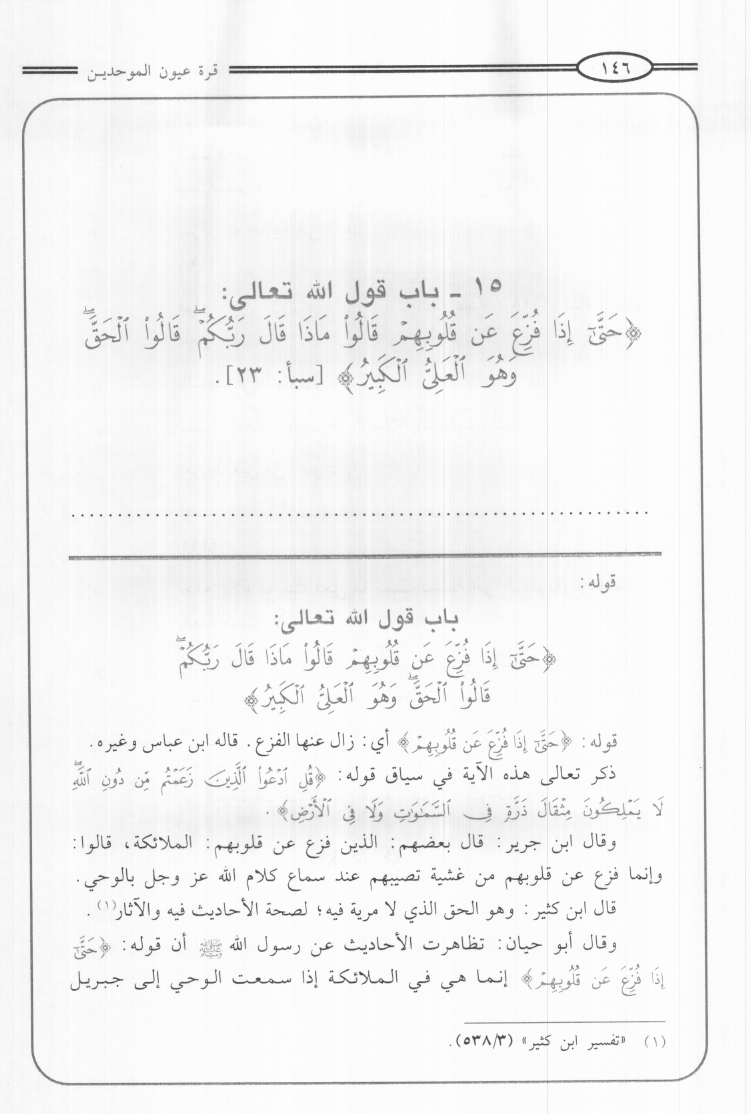 ١٤٦ قرة عيون الموحدين
١٥ - باب قول الله تعالى:
﴿حَتَّىٰٓ إِذَا فُزِّعَ عَن قُلُوبِهِمْ قَالُوا۟ مَاذَا قَالَ رَبُّكُمْ ۖ قَالُوا۟ ٱلْحَقَّ ۖ
وَهُوَ ٱلْعَلِىُّ ٱلْكَبِيرُ﴾ [سبأ: ٢٣].
................................................................
قوله:
باب قول الله تعالى:
﴿حَتَّىٰٓ إِذَا فُزِّعَ عَن قُلُوبِهِمْ قَالُوا۟ مَاذَا قَالَ رَبُّكُمْ ۖ
قَالُوا۟ ٱلْحَقَّ ۖ وَهُوَ ٱلْعَلِىُّ ٱلْكَبِيرُ﴾
قوله: ﴿حَتَّىٰٓ إِذَا فُزِّعَ عَن قُلُوبِهِمْ﴾ أي: زال عنها الفزع. قاله ابن عباس وغيره.
ذكر تعالى هذه الآية في سياق قوله: ﴿قُلِ ٱدْعُوا۟ ٱلَّذِينَ زَعَمْتُم مِّن دُونِ ٱللَّهِ ۖ
لَا يَمْلِكُونَ مِثْقَالَ ذَرَّةٍ فِى ٱلسَّمَٰوَٰتِ وَلَا فِى ٱلْأَرْضِ﴾.
وقال ابن جرير: قال بعضهم: الذين فزع عن قلوبهم: الملائكة، قالوا:
وإنما فزع عن قلوبهم من غشية تصيبهم عند سماع كلام الله عز وجل بالوحي.
قال ابن كثير: وهو الحق الذي لا مرية فيه؛ لصحة الأحاديث فيه والآثار(١).
وقال أبو حيان: تظاهرت الأحاديث عن رسول الله ﷺ أن قوله: ﴿حَتَّىٰٓ
إِذَا فُزِّعَ عَن قُلُوبِهِمْ﴾ إنما هي في الملائكة إذا سمعت الوحي إلى جبريل
(١) «تفسير ابن كثير» (٥٣٨/٣).